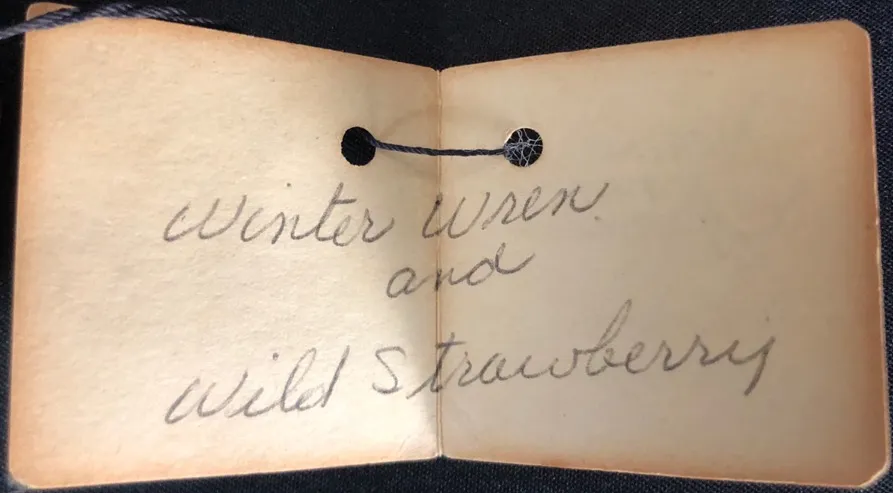 Winter Wren
and
Wild Strawberry